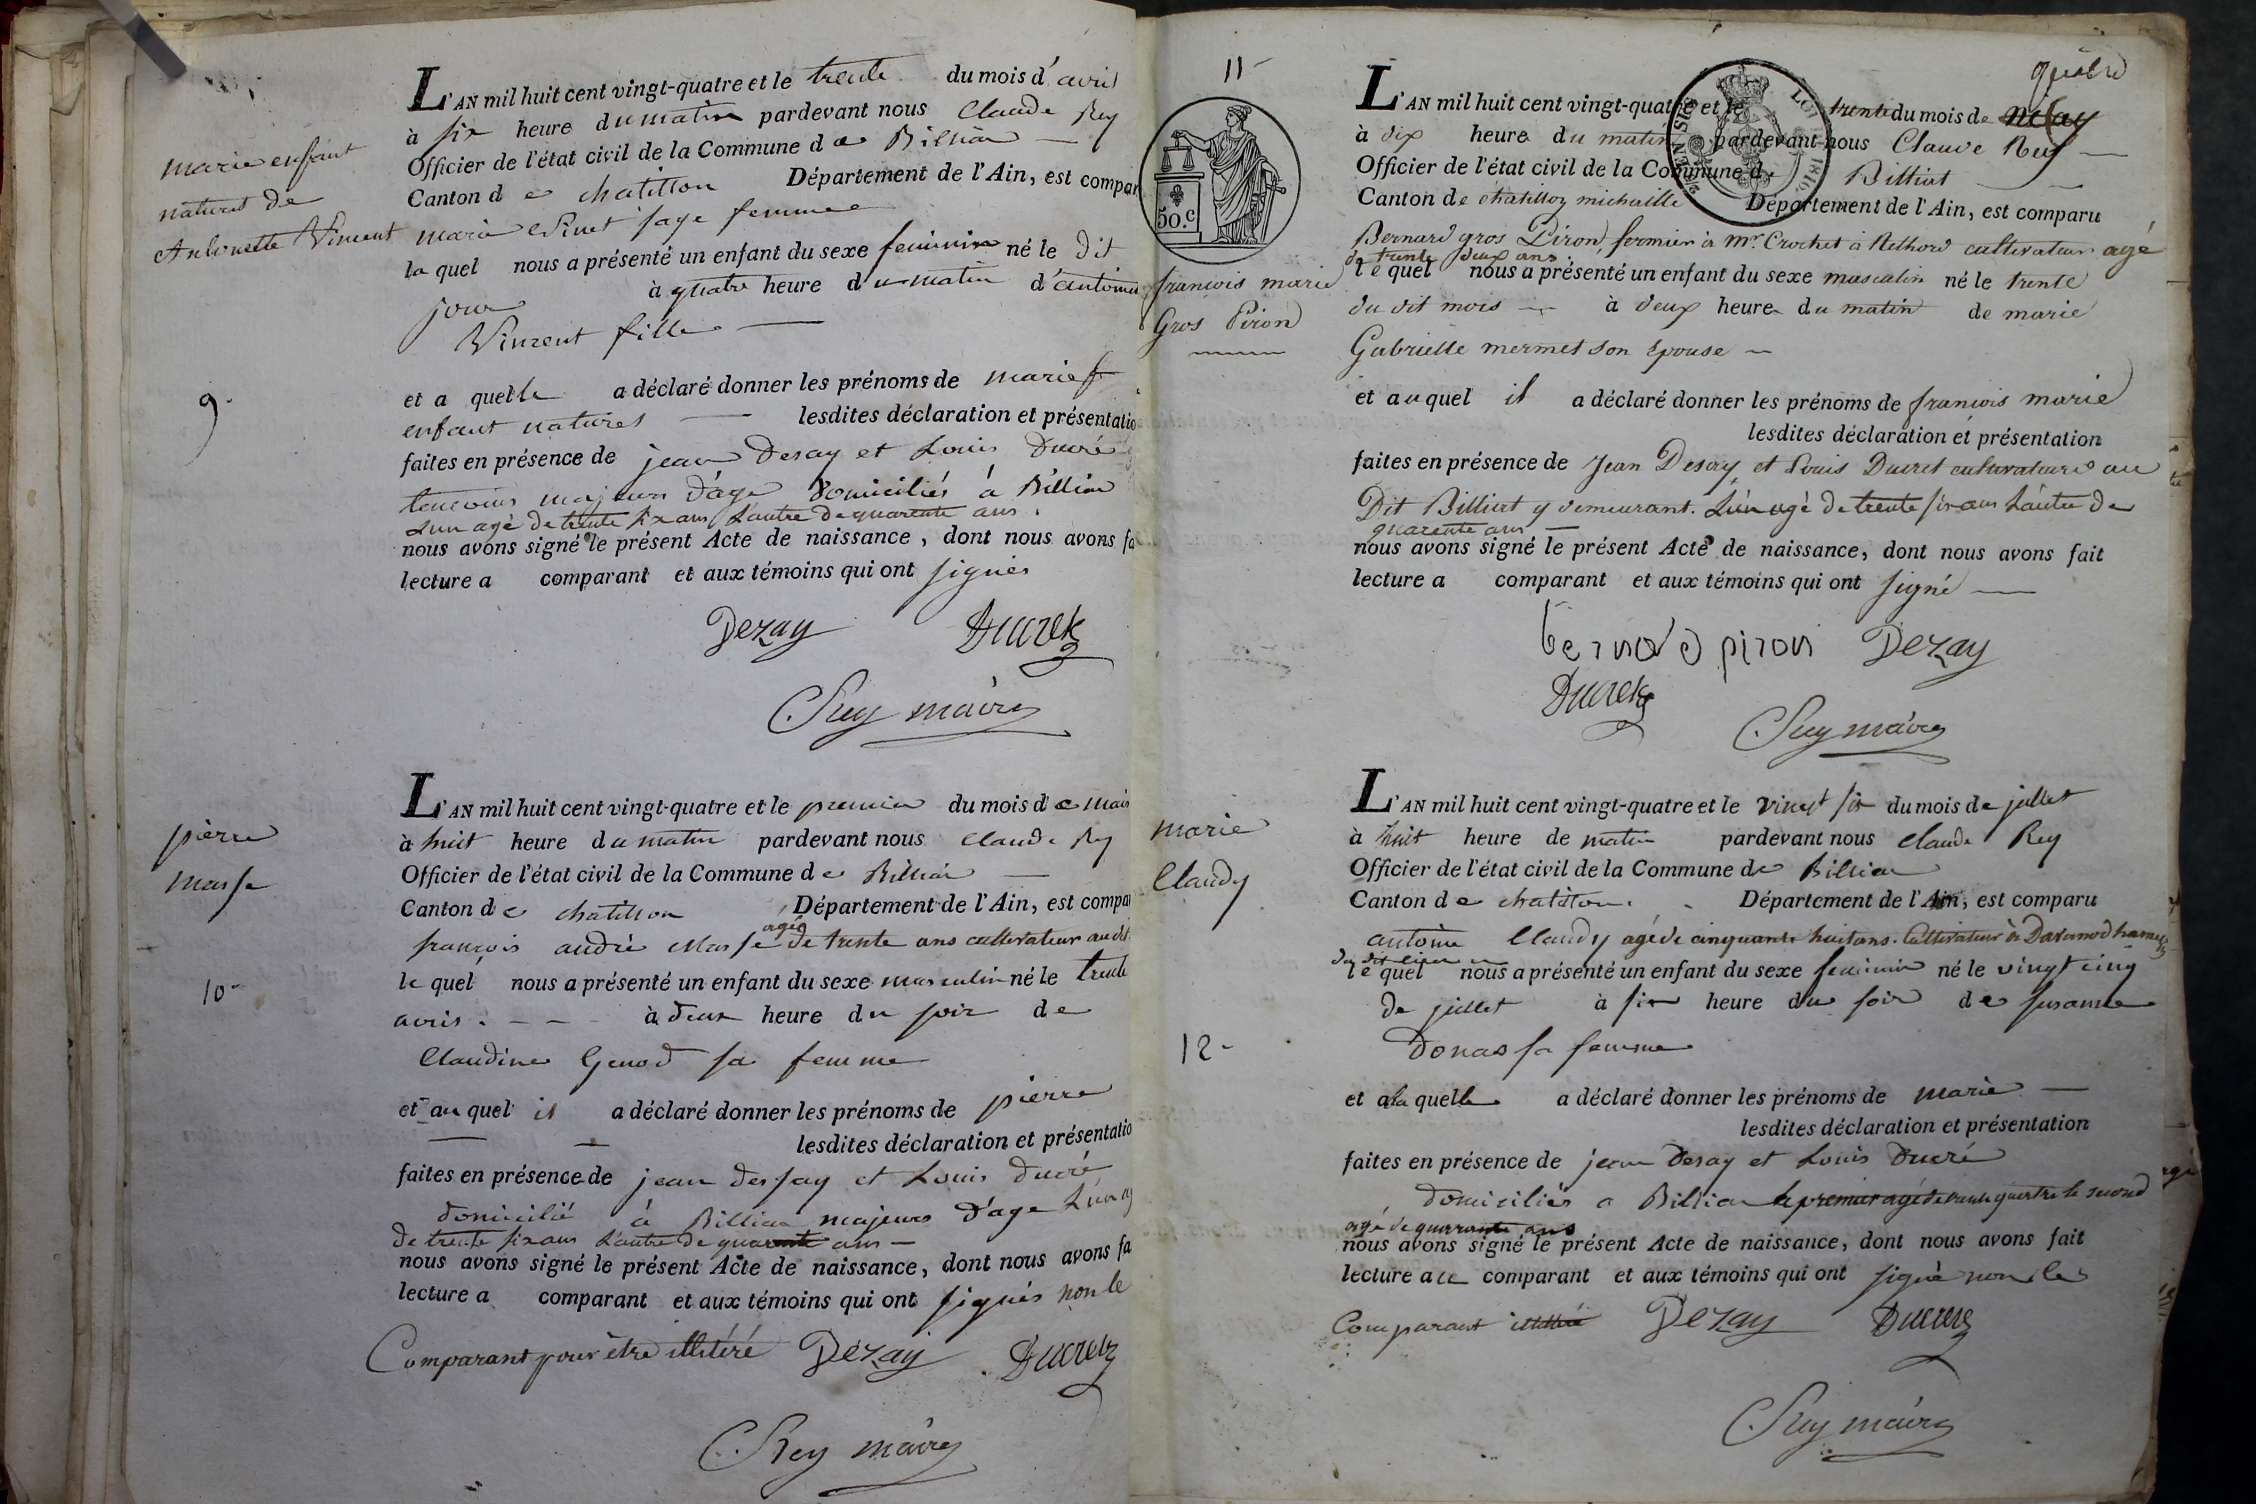 marie enfant
naturel de
Antoinette Vincent
9.
L'AN mil huit cent vingt-quatre et le trente du mois d'avril
à six heure du matin pardevant nous Claude Rey
Officier de l'état civil de la Commune de Billia
Canton de chatillon Département de l'Ain, est compar
marie sage femme
la quel nous a présenté un enfant du sexe feminin né le dit
jour à quatre heure du matin d'antoine
Vincent fille
et a quelle a déclaré donner les prénoms de marie
enfant naturel lesdites déclaration et présentatio
faites en présence de jean Desay et Louis Ducré
temoins majeurs d'age Domiciliés à Billia
L'un agé de trente six ans L'autre de quarente ans.
nous avons signé le présent Acte de naissance, dont nous avons fa
lecture a comparant et aux témoins qui ont signés
Dezay Ducret
Rey maire
pierre
Masse
10
L'AN mil huit cent vingt-quatre et le premier du mois de mai
à huit heure du matin pardevant nous Claude Rey
Officier de l'état civil de la Commune de Billia
Canton de chatillon Département de l'Ain, est compar
françois andré Masse agé de trente ans cultivateur audit
le quel nous a présenté un enfant du sexe masculin né le trente
avril. à deux heure du soir de
Claudine Genod sa femme
et au quel il a déclaré donner les prénoms de pierre
lesdites déclaration et présentatio
faites en présence de jean dessay et Louis ducré
domicilié à Billia majeurs d'age L'un ag
de trente six ans L'autre de quarente ans
nous avons signé le présent Acte de naissance, dont nous avons fa
lecture a comparant et aux témoins qui ont signés non le
Comparant pour être illitéré Dezay Ducret
Rey maire
11
50.C
françois marie
Gros Piron
L'AN mil huit cent vingt-quatre et le trente du mois de
à dix heure du matin pardevant nous Claude Rey
Officier de l'état civil de la Commune de Billiat
Canton de chatillon michaille Département de l'Ain, est comparu
Bernard gros Piron, fermier à Mr. Crochet à cultivateur agé
de trente deux ans.
le quel nous a présenté un enfant du sexe masculin né le trente
du dit mois à deux heure du matin de marie
Gabrielle mermet son épouse
et au quel il a déclaré donner les prénoms de françois marie
lesdites déclaration et présentation
faites en présence de Jean Desay et Louis Ducret cultivateurs au
Dit Billiat y demeurant. L'un agé de trente six ans L'autre de
quarente ans
nous avons signé le présent Acte de naissance, dont nous avons fait
lecture a comparant et aux témoins qui ont signé
bernard piron Dezay
Ducret
Rey maire
marie
Claudy
12
L'AN mil huit cent vingt-quatre et le vingt six du mois de jullet
à huit heure de matin pardevant nous Claude Rey
Officier de l'état civil de la Commune de Billia
Canton de chatillon. Département de l'Ain, est comparu
antoine Claudy agé de cinquante huit ans. Cultivateur à
le quel nous a présenté un enfant du sexe feminin né le vingt cinq
de jullet à six heure du soir de susanne
Donas sa femme
et a la quelle a déclaré donner les prénoms de marie
lesdites déclaration et présentation
faites en présence de jean Desay et Louis Ducré
domiciliés a Billia le premier agé de trente quatre le second
agé de quarrante ans
nous avons signé le présent Acte de naissance, dont nous avons fait
lecture au comparant et aux témoins qui ont signé non le
Comparant Dezay Ducret
Rey maire